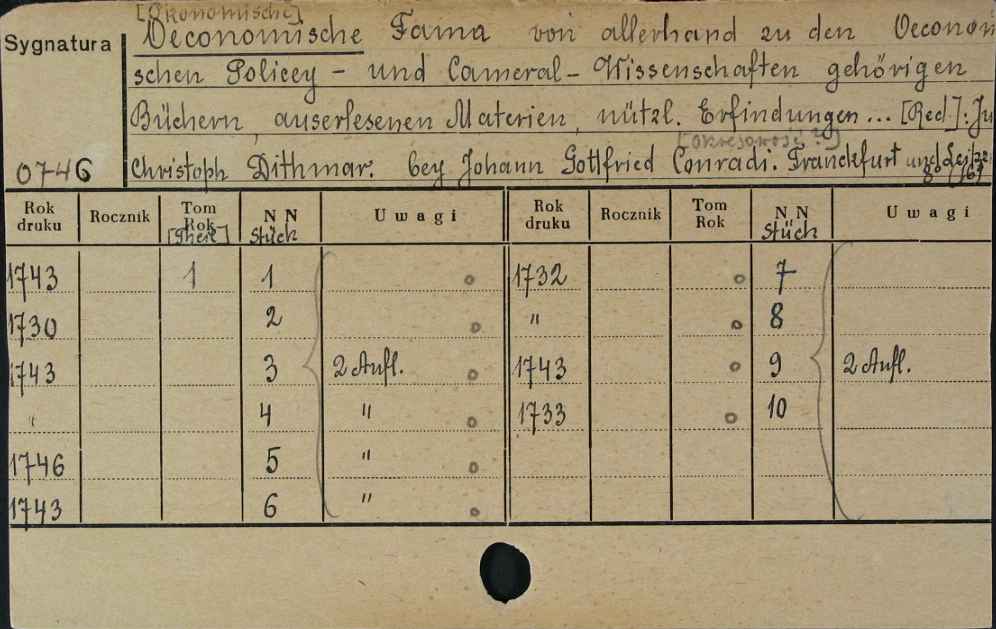 [Ökonomische]
Sygnatura Oeconomische Fama von allerhand zu den Oeconomi
schen Policey - und Cameral - Wissenschaften gehörigen
Büchern, auserlesenen Materien, nützl. Erfindungen ... [Red.]: Ju
[okresowość?]
0746 Christoph Dithmar. bey Johann Gottfried Conradi. Franckfurt und
8°
Rok druku Rocznik Tom Rok [Theil] NN Stück Uwagi Rok druku Rocznik Tom Rok NN Stück Uwagi
1743 1 1 o 1732 o 7
1730 2 o " o 8
1743 3 2 Aufl. o 1743 o 9 2 Aufl.
" 4 " o 1733 o 10
1746 5 " o
1743 6 " o